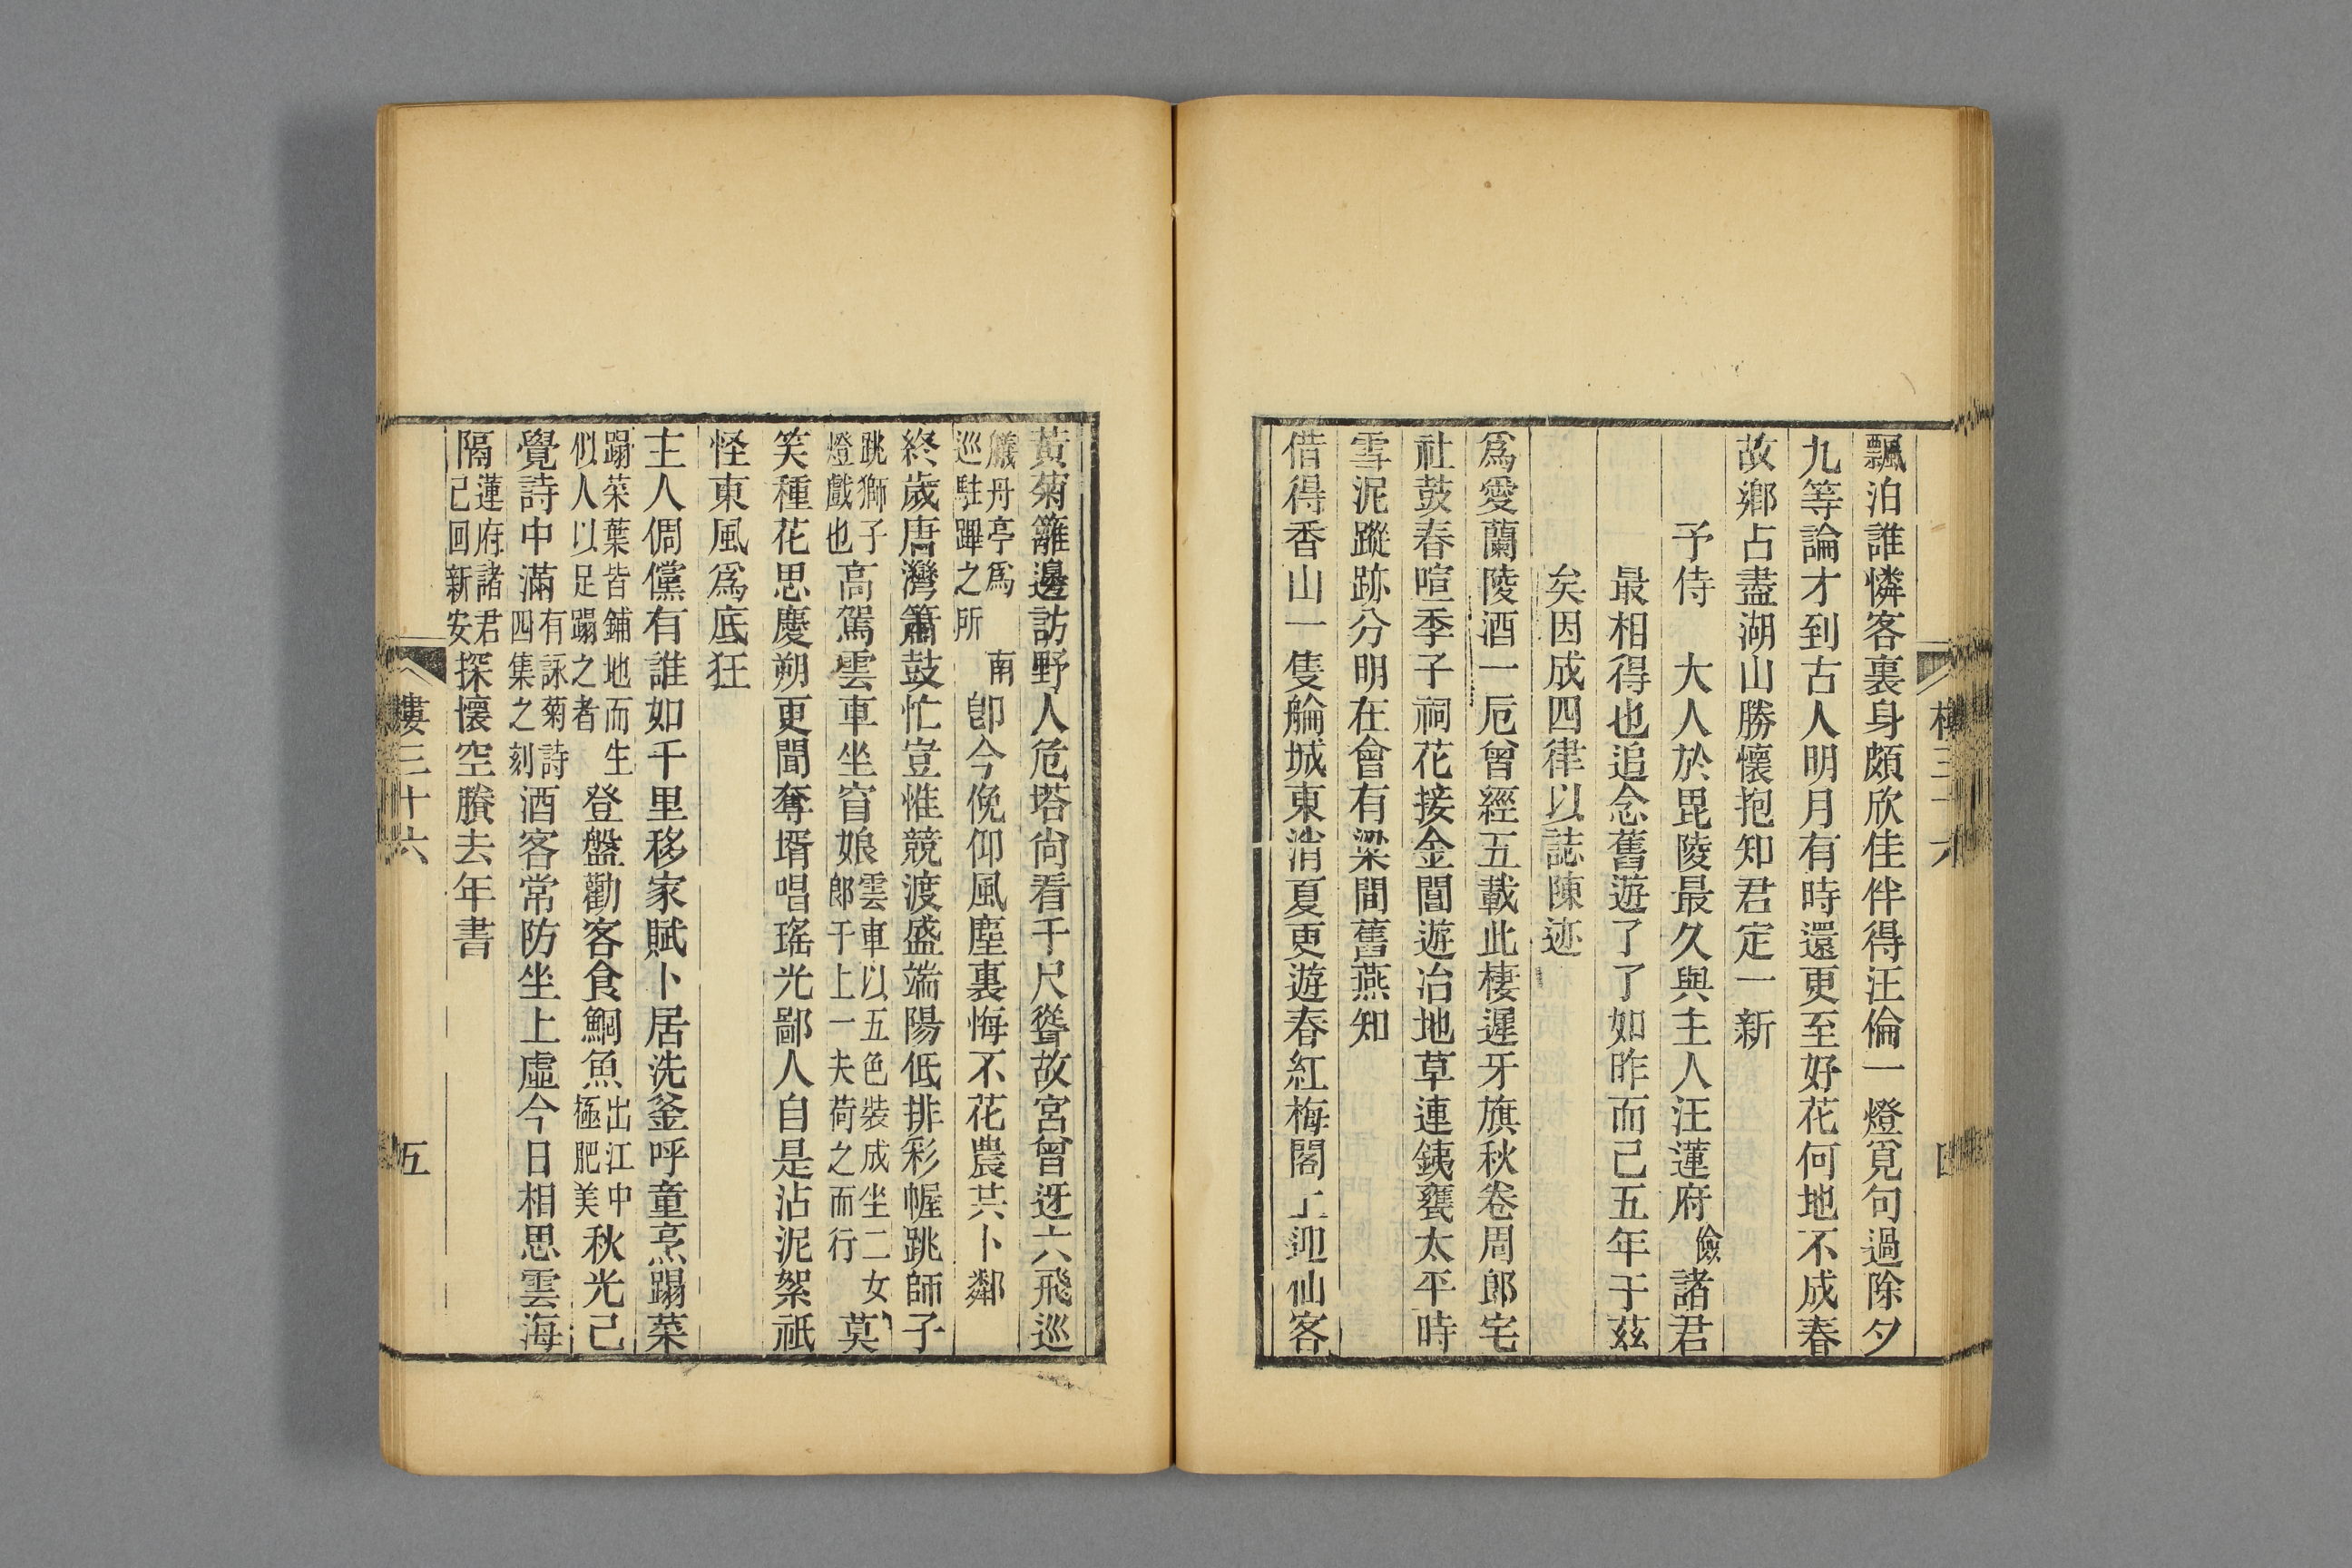 飄泊誰憐客裏身頗欣佳伴得汪倫一燈覓句過除夕
九等論才到古人明月有時還更至好花何地不成春
故鄉占盡湖山勝懷抱知君定一新
予侍　大人於毘陵最久與主人汪蓮府儉諸君
最相得也追念舊遊了了如昨而己五年于茲
矣因成四律以誌陳迹
爲愛蘭陵酒一卮曾經五載此棲遲牙旗秋卷周郎宅
社鼓春喧季子祠花接金閶遊冶地草連銕甕太平時
雪泥蹤跡分明在會有梁間舊燕知
借得香山一隻艙城東消夏更遊春紅梅閣上迎仙客
黃菊籬邊訪野人危塔尙看千尺聳故宮曾迓六飛巡
艤丹亭爲　南
巡駐蹕之所
卽今俛仰風塵裏悔不花農共卜鄰
終歲唐灣簫鼓忙豈惟競渡盛端陽低排彩幄跳師子
跳獅子
燈戲也
高駕雲車坐窅娘
雲車以五色裝成坐二女
郎于上一夫荷之而行
莫
笑種花思慶朔更聞奪壻唱瑤光鄙人自是沾泥絮祇
怪東風爲底狂
主人倜儻有誰如千里移家賦卜居洗釜呼童烹蹋菜
蹋菜葉皆鋪地而生
似人以足蹋之者
登盤勸客食鮰魚
出江中
極肥美
秋光己
覺詩中滿
有詠菊詩
四集之刻
酒客常防坐上虛今日相思雲海
隔
蓮府諸君
己回新安
探懷空賸去年書
樓三十六
五